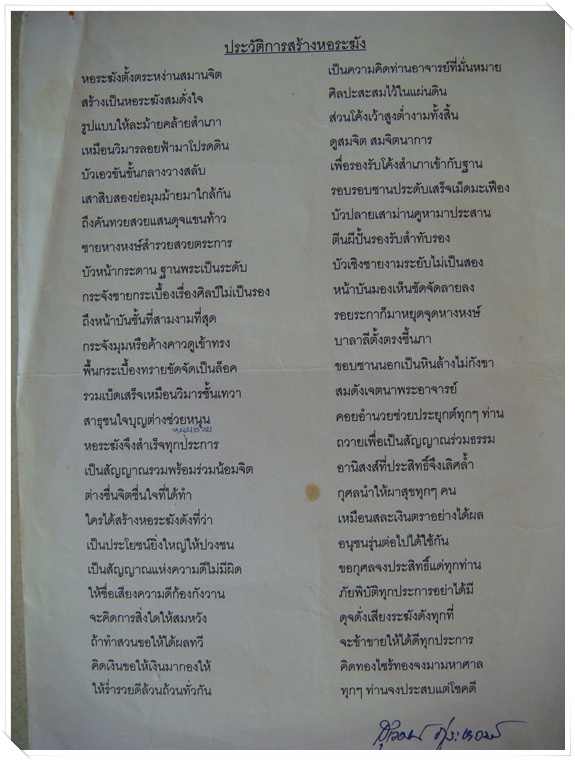 ประวัติการสร้างหอระฆัง
หอระฆังตั้งตระหง่านสมานจิต เป็นความคิดท่านอาจารย์ที่มั่นหมาย
สร้างเป็นหอระฆังสมดั่งใจ ศิลปะสะสมไว้ในแผ่นดิน
รูปแบบให้ละม้ายคล้ายสำเภา ส่วนโค้งเว้าสูงต่ำงามทั้งสิ้น
เหมือนวิมารลอยฟ้ามาโปรดดิน ดูสมจิต สมจิตนาการ
บัวเอวขันชั้นกลางวางสลับ เพื่อรองรับโค้งสำเภาเข้ากับฐาน
เสาสิบสองย่อมุมม้ายมาใกล้กัน รอบรอบซานประดับเสร็จเม็ดมะเฟือง
ถึงคันทวยสวยแสนดุจแขนท้าว บัวปลายเสาม่านคูหามาประสาน
ชายหางหงษ์สำรวยสวยตระการ ตีนผีปั้นรองรับสำทับรอง
บัวหน้ากระดาน ฐานพระเป็นระดับ บัวเชิงชายงามระยับไม่เป็นสอง
กระจังชายกระเบื้องเรื่องศิลป์ไม่เป็นรอง หน้าบันมองเห็นชัดจัดลายลง
ถึงหน้าบันชั้นที่สามงามที่สุด รอยระกาก็มาหยุดจุดหางหงษ์
กระจังมุมหรือค้างคาวดูเข้าทรง บาลาลีตั้งตรงชี้นภา
พื้นกระเบื้องทรายขัดจัดเป็นล็อค ขอบซานนอกเป็นหินล้างไม่กังขา
รวมเบ็ดเสร็จเหมือนวิมารชั้นเทวา สมดังเจตนาพระอาจารย์
สาธุชนใจบุญต่างช่วยหนุน คอยอำนวยช่วยประยุกต์ทุกๆ ท่าน
หอระฆังจึงสำเร็จทุกประการ ถวายเพื่อเป็นสัญญาณร่วมธรรม
เป็นสัญญาณรวมพร้อมร่วมน้อมจิต อานิสงส์ที่ประสิทธิ์จึงเลิศล้ำ
ต่างชื่นจิตชื่นใจที่ได้ทำ กุศลนำให้ผาสุขทุกๆ คน
ใครได้สร้างหอระฆังดังที่ว่า เหมือนสละเงินตราอย่างได้ผล
เป็นประโยชน์ยิ่งใหญ่ให้ปวงชน อนุชนรุ่นต่อไปได้ใช้กัน
เป็นสัญญาณแห่งความดีไม่มีผิด ขอกุศลจงประสิทธิ์แด่ทุกท่าน
ให้ชื่อเสียงความดีก้องกังวาน ภัยพิบัติทุกประการอย่าได้มี
จะคิดการสิ่งใดให้สมหวัง ดุจดั่งเสียงระฆังดังทุกที่
ถ้าทำสวนขอให้ได้ผลทวี จะข้าขายให้ได้ดีทุกประการ
คิดเงินขอให้เงินมากองให้ คิดทองไซร้ทองจงมามหาศาล
ให้ร่ำรวยดีล้วนถ้วนทั่วกัน ทุกๆ ท่านจงประสบแต่โชคดี